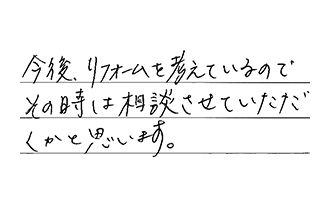 今後、リフォームを考えているので
その時は相談させていただだ
くかと思います。